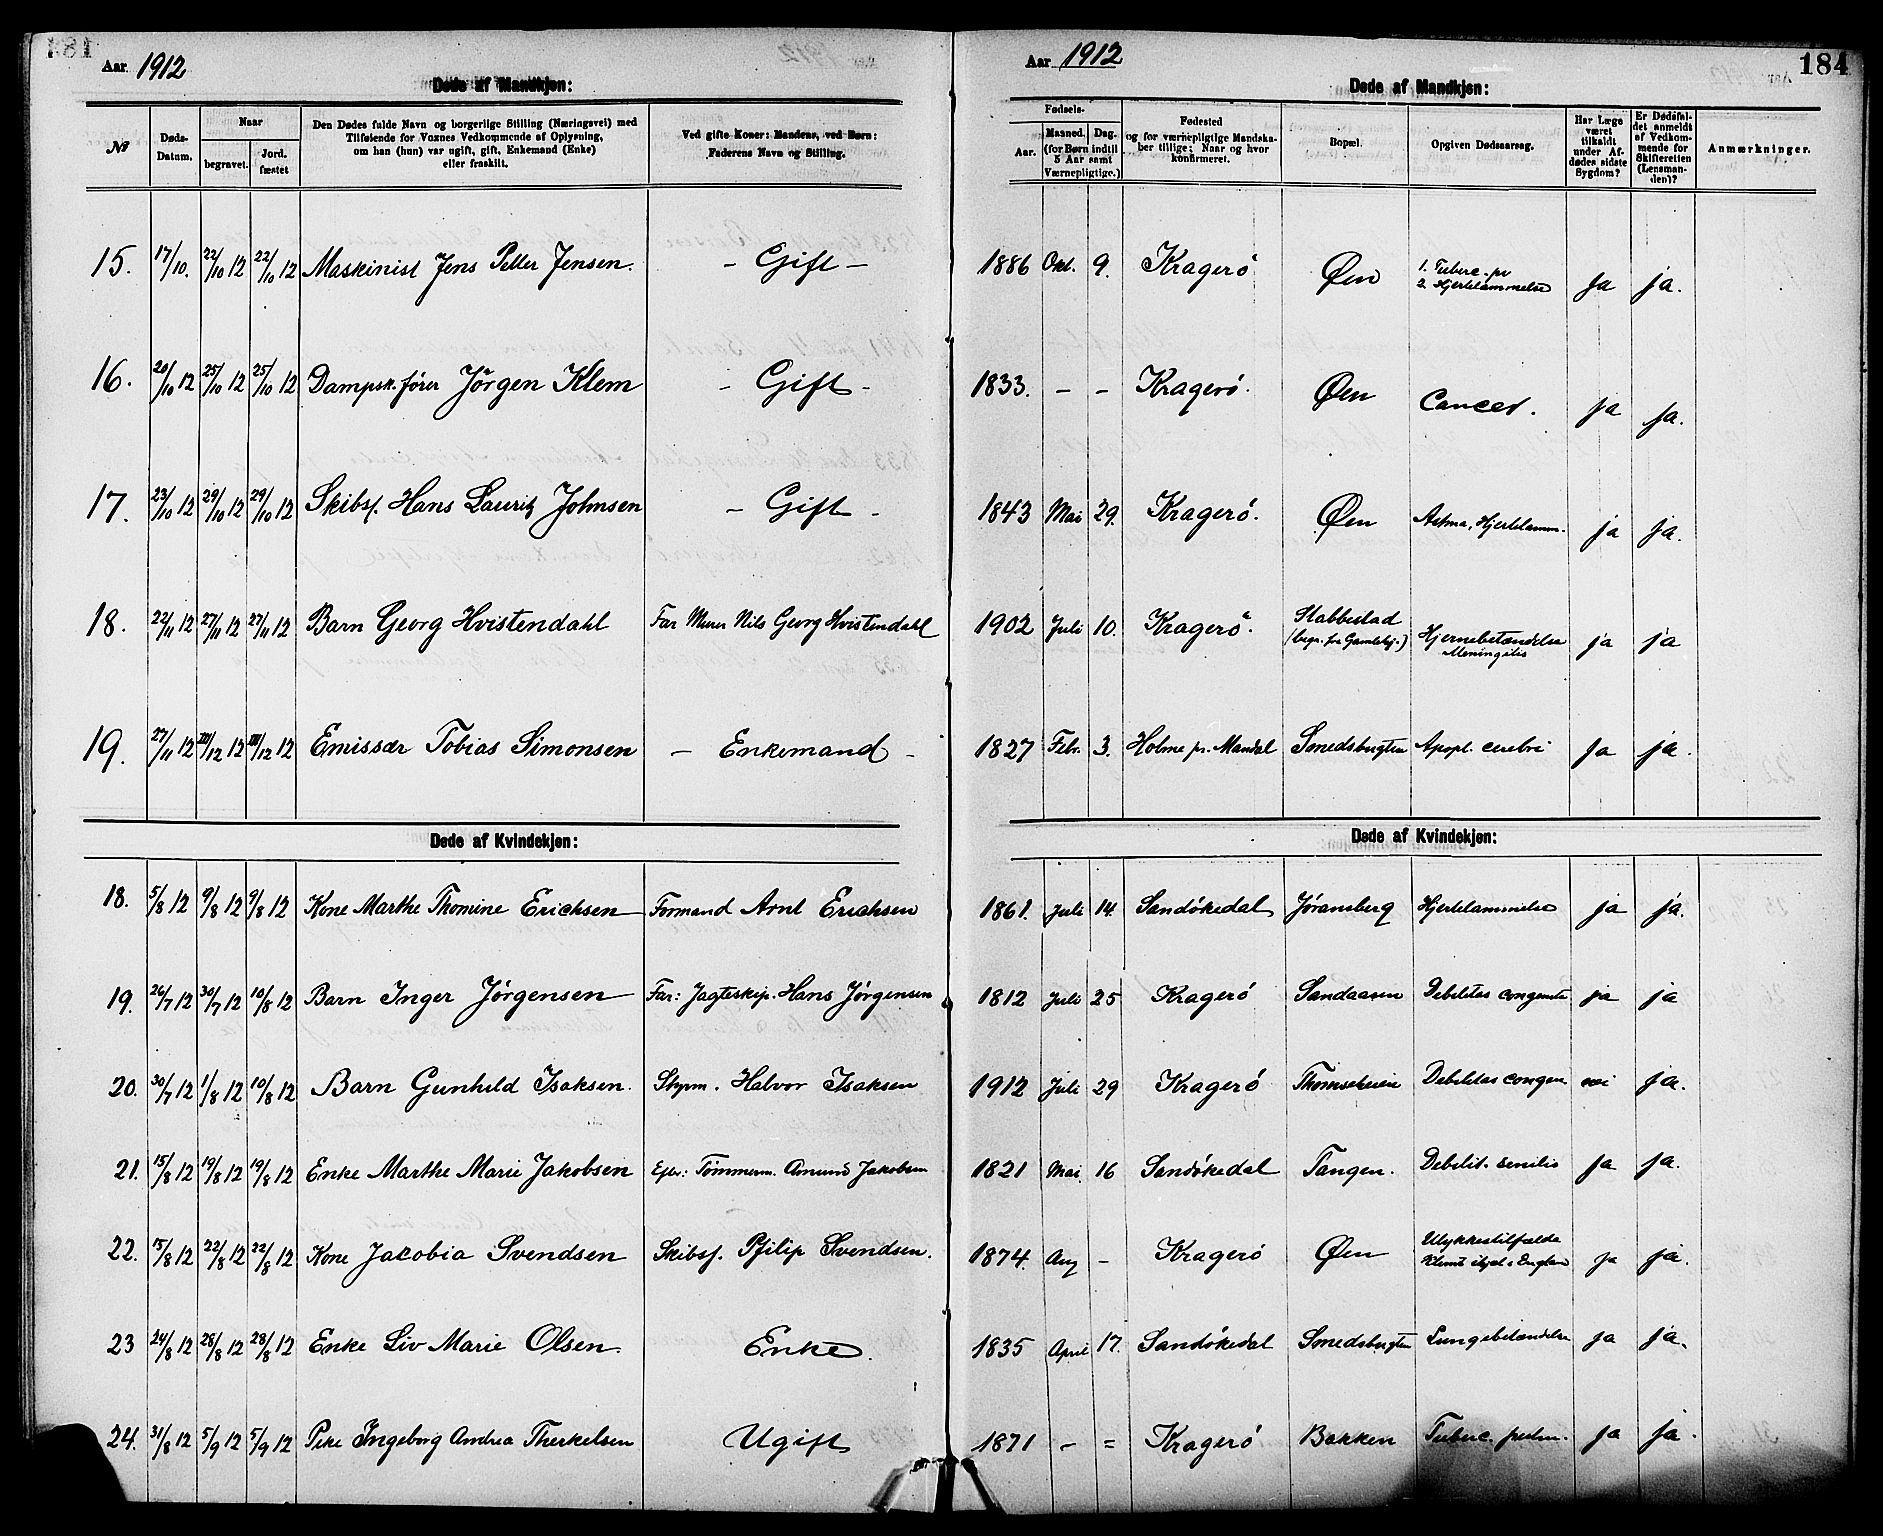 Aar 1912
Døde af Mandkjøn:
№ Døds-Datum. Naar begravet. Jord. fæstet Den Dødes fulde Navn og borgerlige Stilling (Næringsvei) med Tilføiende for Voxnes Vedkommende af Oplysning, om han (hun) var ugift, gift, Enkemand (Enke) eller fraskilt. Ved gifte Koner: Mandens, ved Børn: Faderens Navn og Stilling.
15. 17/10. 22/10 12 22/10 12 Maskinist Jens Petter Jensen. – Gift –
16. 20/10 12 25/10 12 25/10 12 Dampsk.fører Jörgen Klem – Gift –
17. 23/10 12 29/10 12 29/10 12 Skibsf. Hans Lauritz Johnsen – Gift –
18. 22/11 12 27/11 12 27/11 12 Barn Georg Hvistendahl Far Murer Nils Georg Hvistendahl
19. 27/11 12 III/12 12 III/12 12 Emissær Tobias Simonsen – Enkemand –
Døde af Kvindekjøn:
18. 5/8 12 9/8 12 9/8 12 Kone Marthe Thomine Erichsen Formand Arnt Erichsen
19. 26/7 12 30/7 12 10/8 12 Barn Inger Jørgensen Far: Jagteskip. Hans Jørgensen
20. 30/7 12 1/8 12 10/8 12 Barn Gunhild Isaksen. Styrm. Halvor Isaksen
21. 15/8 12 19/8 12 19/8 12 Enke Marthe Marie Jakobsen Efter: Tømmerm. Amund Jakobsen
22. 15/8 12 22/8 12 22/8 12 Kone Jakobia Svendsen Skibsf. Philip Svendsen.
23 24/8 12 28/8 12 28/8 12 Enke Liv Marie Olsen. Enke.
24. 31/8 12 5/9 12 5/9 12 Pike Ingeborg Andrea Therkelsen Ugift
Aar 1912
184
Døde af Mandkjøn:
Fødsels- Aar. Maaned. Dag. (for Børn indtil 5 Aar samt Værnepligtige.) Fødested og for værnepligtige Mandskaber tillige: Naar og hvor konfirmeret. Bopæl. Opgiven Dødsaarsag. Har Læge været tilkaldt under Afdødes sidste Sygdom? Er Dødsfaldet anmeldt af Vedkommende for Skifteretten (Lensmanden)? Anmærkninger.
1886 Okt. 9. Kragerö Øen 1. Tuberc. pu 2. Hjertelammelse Ja ja.
1833. – – Kragerö. Øen Cancer. ja ja.
1843 Mai 29. Kragerö. Øen Astma, Hjertelamm. ja ja.
1902 Juli 10. Kragerö. Stabbestad (begr. fra Gamlekj.) Hjernebetændelse Meningitis ja ja
1827 Febr. 3. Holme pr. Mandal Smedsbugten Apopl. cerebri Ja ja.
Døde af Kvindekjøn:
1861. Juli 14. Sandøkedal Jøransberg Hjertelammelse ja ja.
1812 Juli 25 Kragerö Sandaasen Debilitas congenita ja ja
1912 Juli 29 Kragerö Thomseheien Debilitas congen nei ja.
1821 Mai. 16 Sandøkedal Tangen. Debilit. senilis Ja ja.
1874. Aug – Kragerö Øen Ulykkestilfælde Klemt ihjel i England ja ja.
1835 April 17. Sandøkedal Smedsbugten Lungebetændelse ja ja.
1871 – = Kragerö Bakken Tuberc. pulm. ja ja.